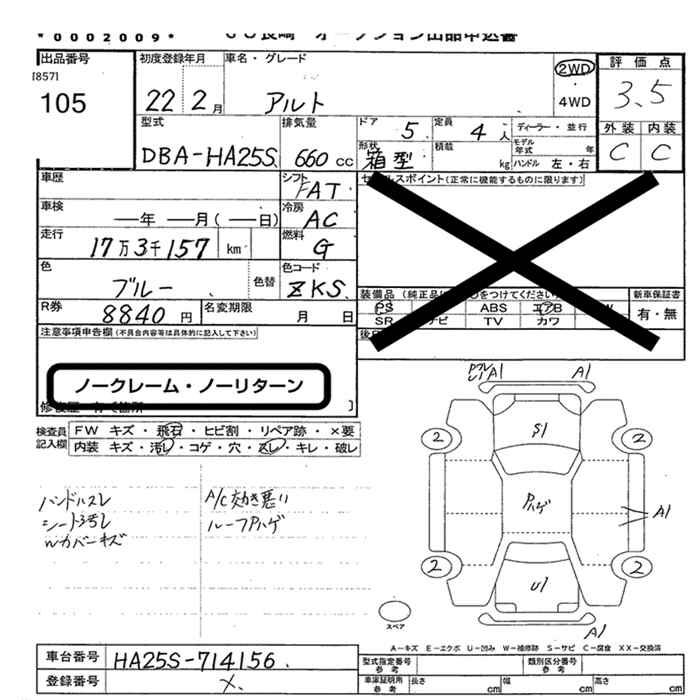 *0002009*
JU長崎 オークション出品申込書
出品番号
[857]
105
初度登録年月
22 2月
車名・グレード
アルト
2WD
・
4WD
評価点
3.5
外装 内装
C C
型式
DBA-HA25S
排気量
660 cc
ドア
5
定員
4人
形状
箱型
積載
kg
ディーラー・並行
モデル年式 年
ハンドル 左・右
車歴
シフト
FAT
車検
―年 ―月(―日)
冷房
AC
走行
17万3千157 km
燃料
G
色
ブルー
色替
色コード
ZKS
R券
8840円
名変期限
月 日
セールスポイント(正常に機能するものに限ります)
装備品
PS ABS エアB
SR ナビ TV カワ
新車保証書
有・無
注意事項申告欄(不具合内容等は具体的に記入して下さい)
ノークレーム・ノーリターン
検査員記入欄
FW キズ・飛石・ヒビ割・リペア跡・×要
内装 キズ・汚レ・コゲ・穴・スレ・キレ・破レ
ハンドルスレ
A/C効き悪い
ルーフPハゲ
Wカバーキズ
U1 A1 A1
S1
2 2
Pハゲ
A1
2 2
U1
A1
スペア
A-キズ E-エクボ U-凹み W-補修跡 S-サビ C-腐食 XX-交換済
車台番号
HA25S-714156
登録番号
×
型式指定番号
参考
類別区分番号
参考
車庫証明用
参考
長さ cm 幅 cm 高さ cm